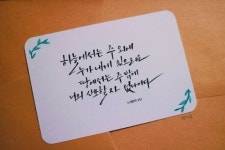 하늘에서는 주 외에
누가 내게 있으리요
땅에서는 주 밖에
나의 사모할 자 없나이다